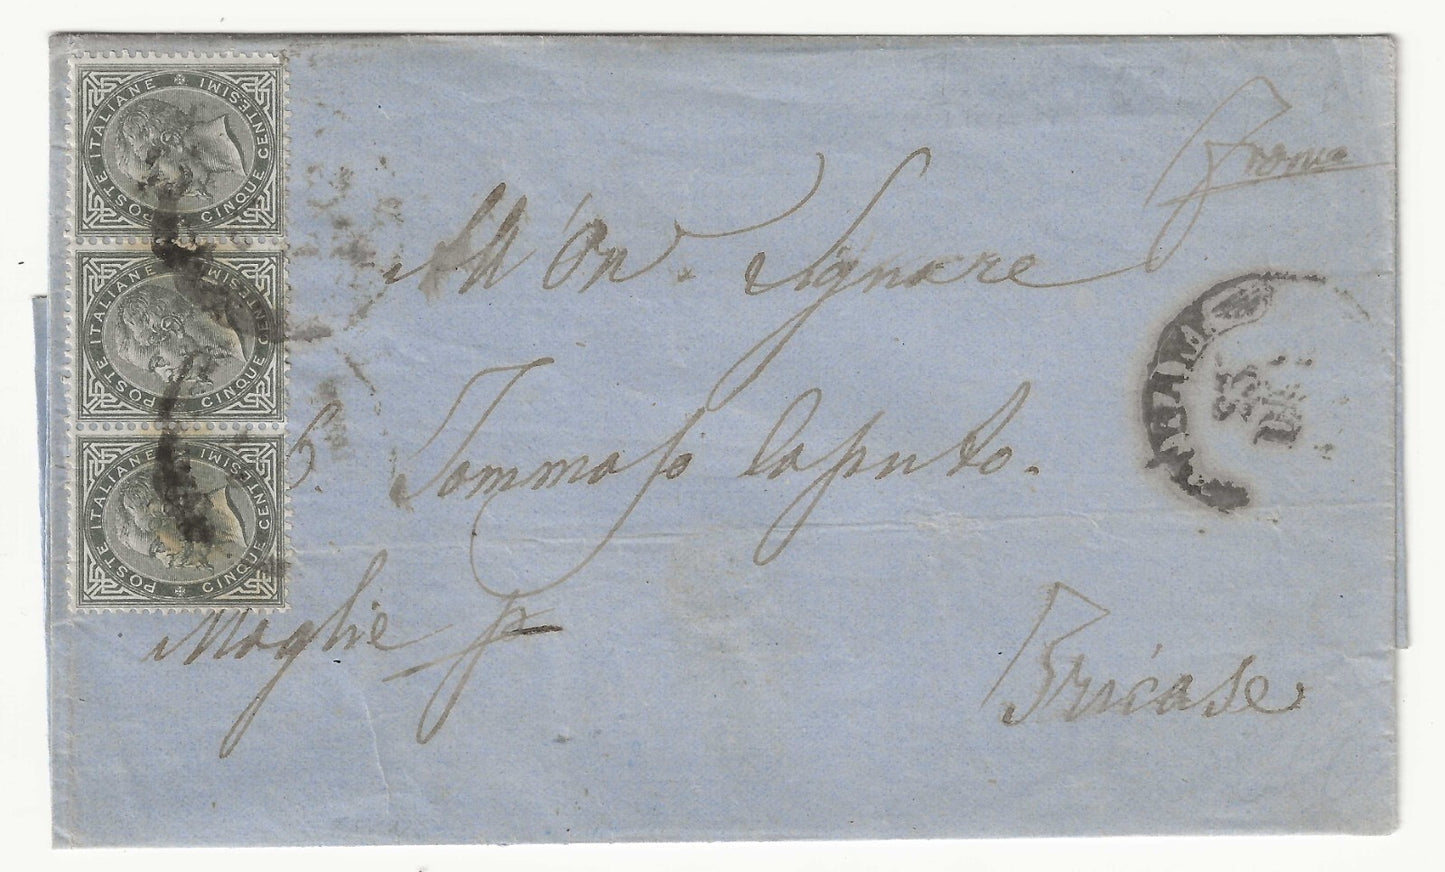 POSTE ITALIANE CINQUE CENTESIMI
POSTE ITALIANE CINQUE CENTESIMI
POSTE ITALIANE CINQUE CENTESIMI
All'On. Signore
Tommaso Caputo.
Maglie p
Tricase
23